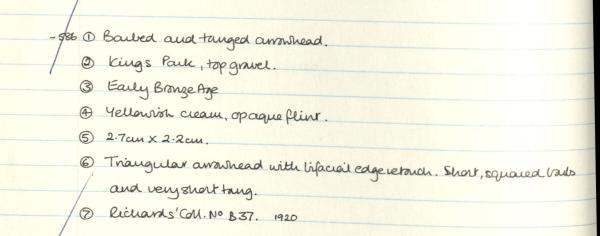 -586 ① Barbed and tanged arrowhead.
② Kings Park, top gravel.
③ Early Bronze Age
④ Yellowish cream, opaque flint.
⑤ 2.7cm X 2.2cm.
⑥ Triangular arrowhead with bifacial edge retouch. Short, squared barbs
and very short tang.
⑦ Richards' Coll. No B37. 1920